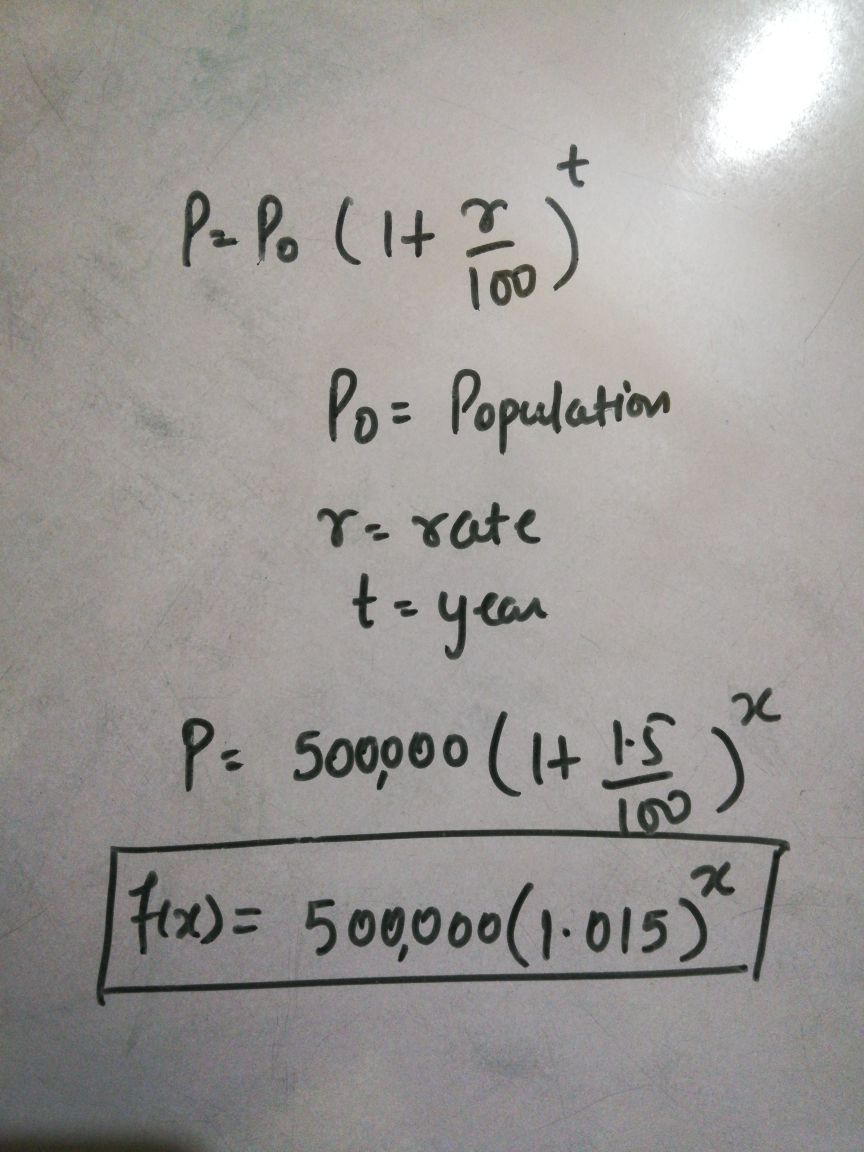 P = P₀ (1 + r/100)^t
P₀ = Population
r = rate
t = year
P = 500,000 (1 + 1.5/100)^x
f(x) = 500,000(1.015)^x